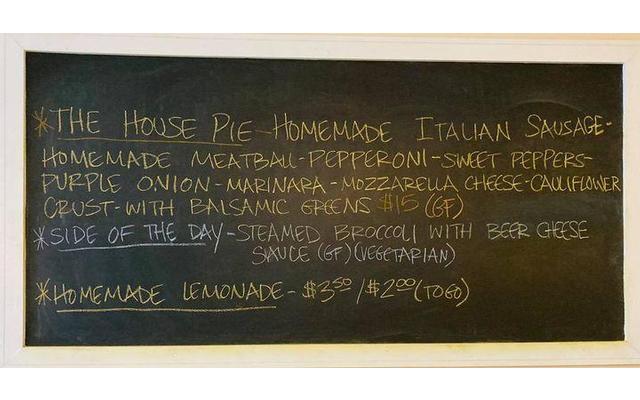 *THE HOUSE PIE-HOMEMADE ITALIAN SAUSAGE-
HOMEMADE MEATBALL-PEPPERONI-SWEET PEPPERS-
PURPLE ONION-MARINARA-MOZZARELLA CHEESE-CAULIFLOWER
CRUST-WITH BALSAMIC GREENS $15 (GF)
*SIDE OF THE DAY-STEAMED BROCCOLI WITH BEER CHEESE
SAUCE (GF) (VEGETARIAN)
*HOMEMADE LEMONADE-$3.50/$2.00 (TO GO)